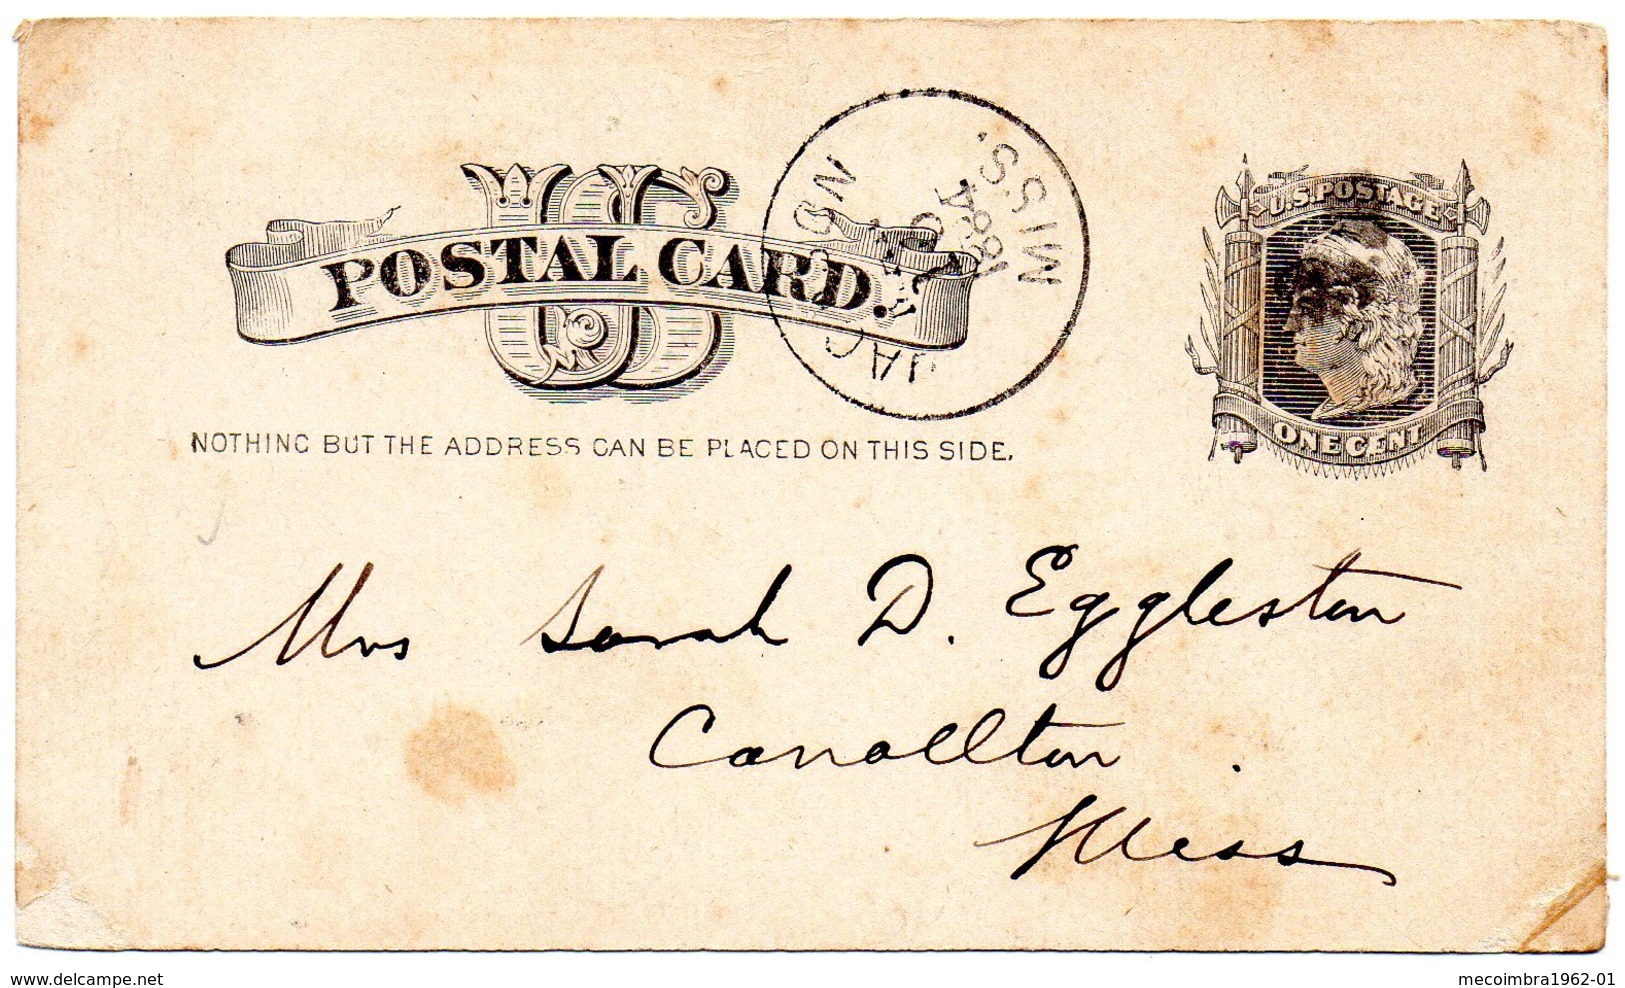 US
POSTAL CARD.
MISS.
1884
U.S. POSTAGE
ONE CENT
NOTHING BUT THE ADDRESS CAN BE PLACED ON THIS SIDE.
Mrs Sarah D. Eggleston
Carrollton.
Miss
www.delcampe.net
mecoimbra1962-01